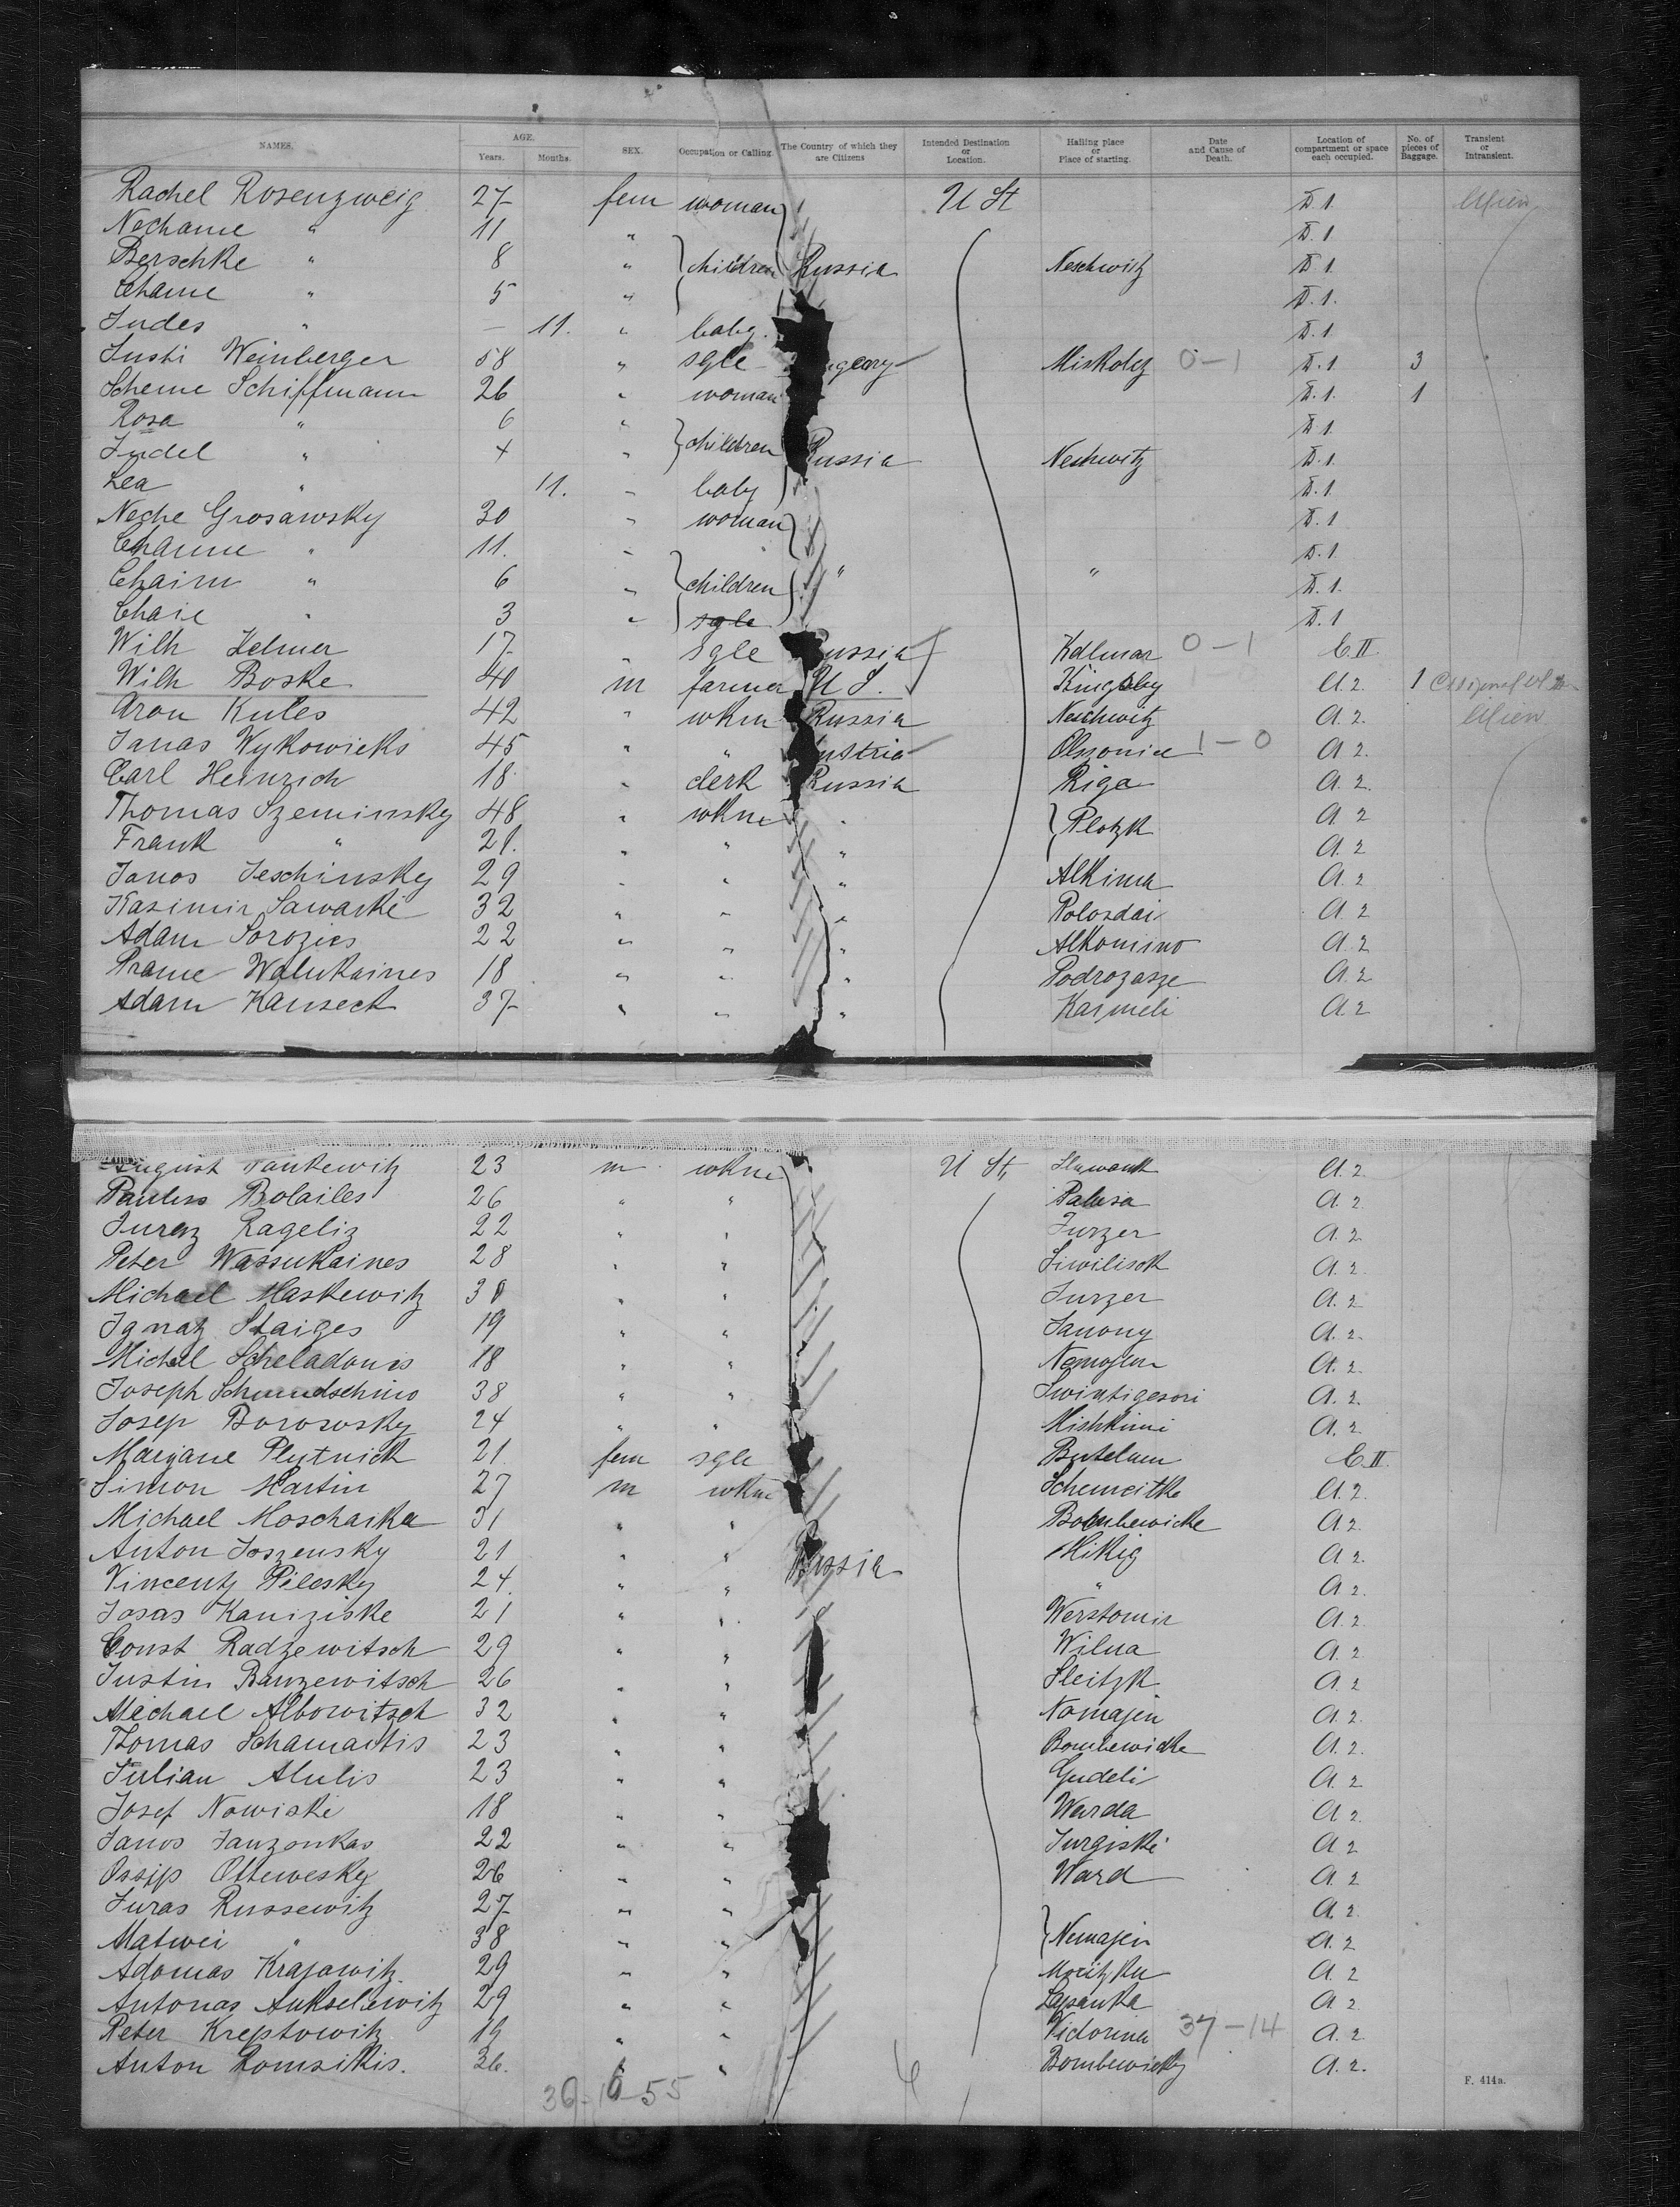 NAMES. AGE. Years. Months. SEX. Occupation or Calling. The Country of which they are Citizens Intended Destination or Location. Hailing place or Place of starting. Date and Cause of Death. Location of compartment or space each occupied. No. of pieces of Baggage. Transient or Intransient.
Rachel Rosenzweig 27 fem woman U St D.1
Nechame " 11 " D.1
Berschke " 8 " children Russia Neschwitz D.1
Chame " 5 " D.1.
Judes " — 11. " baby. D.1
Justi Weinberger 58 " sgle Miskolcz 0-1 D.1 3
Scheme Schiffmann 26 " woman D.1. 1
Rosa " 6 " D.1
Judel " 4 " children Russia Neshwitz D.1
Lea " 11. " baby D.1
Neche Grosawsky 30 " woman D.1
Channe " 11. " D.1
Chaim " 6 " children " " D.1.
Chaie " 3 " sgle D.1
Wilh Helmer 17 " sgle Russia Kolmar 0-1 C.II.
Wilh Boske 40 m farmer U S. Kingsley A 2. 1
Aron Kules 42 " wkm Russia Neschwitz A. 2.
Janas Wykowicks 45 " " Austria 1-0 A 2.
Carl Heinrich 18 " clerk Russia Riga A. 2.
Thomas Szeminsky 48 " wkm " Plotzk A 2
Frank " 21. " " " A. 2
Janos Jeschinsky 29 " " " Alkima A. 2
Kasimir Sawaske 32 " " " Polosdai A. 2
Adam Sorozies 22 " " " Alkomino A. 2
Prame Walukaines 18 " " " Podrozasze A. 2
Adam Kanseck 37 " " " Karmeli A. 2
August Jankewitz 23 m wkm U St, A. 2.
Paulus Bolailes 26 " " Palusa A. 2
Juraz Rageliz 22 " " Jurzer A. 2
Peter Wassukaines 28 " " Siwilisck A. 2.
Michael Maskewitz 30 " " Jurzer A. 2
Ignatz Staiges 19 " " Janony A. 2.
Michel Scheladonis 18 " " A. 2.
Joseph Schmudschino 38 " " Swintigesori A. 2.
Josep Borosowsky 24 " " Mishkimi A. 2
Marjane Plytnick 21. fem sgle Butelum C.II.
Simon Martin 27 m wkm Schemeitke A. 2.
Michael Moschaika 31 " " Bombewicke A 2.
Anton Joszensky 21 " " Russia Hikig A 2.
Vincentz Pilesky 24. " " " A 2.
Josas Kaniziske 21 " " Werstomir A. 2.
Const Radzewitsch 29 " " Wilna A. 2
Justin Banzewitsch 26 " " Sleitzk A. 2
Michael Albowitsch 32 " " Nomajen A. 2.
Thomas Schamaitis 23 " " Bombewicke A. 2.
Julian Alulis 23 " " Gudeli A. 2
Josef Nowiski 18 " " Warda A 2.
Janos Janzonkas 22 " " Jurgiski A 2
Ossip Ottewesky 26 " " Ward A 2
Juras Russewitz 27 " " A. 2
Matwei " 38 " " Nemajen A. 2
Adomas Krajowitz. 29 " " A. 2
Antonas Aukselewitz 29 " " Lapanka A 2
Peter Kreptowitz 19 " " Vidorina 37-14 A. 2
Anton Romsikis. 36. " " Bombewicky A. 2.
F. 414a.